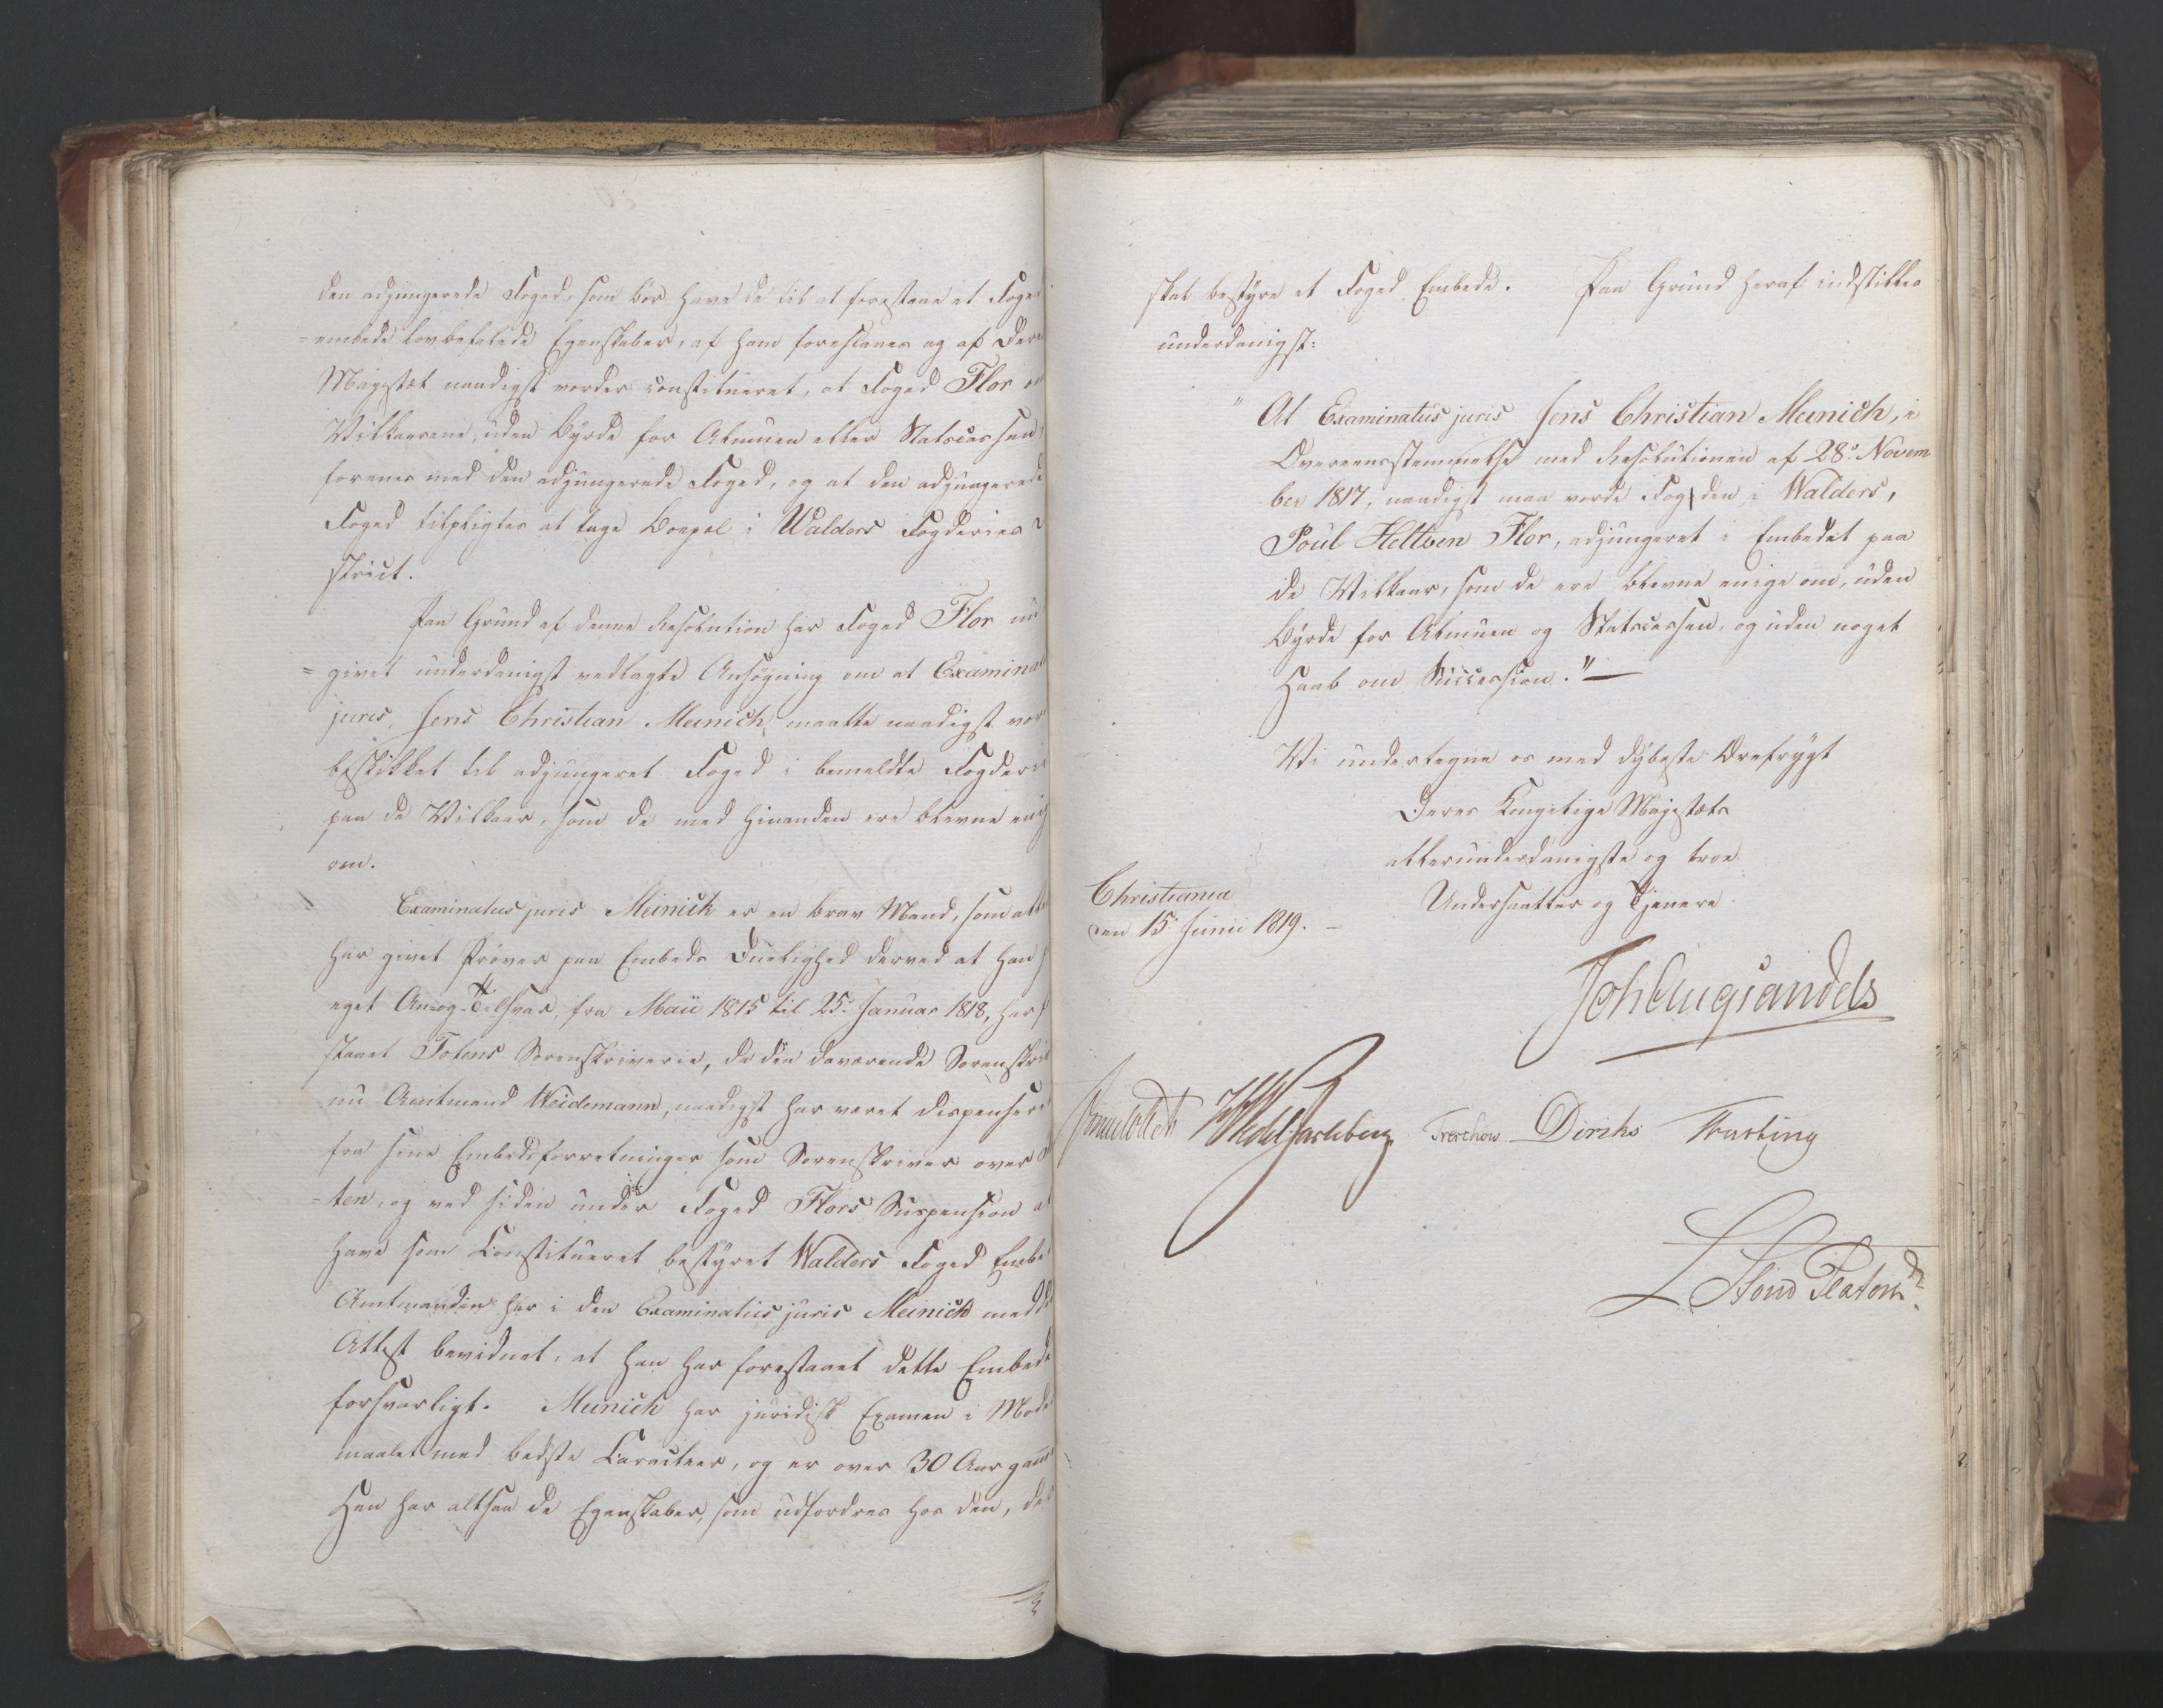 den adjungerede Foged, som bör have de til at forestaae et Foged
=embede lovbefalede Egenskaber, af ham foreslaaes og af Deres
Majestæt naadigst vorder constitueret, at Foged Flor om
Vilkaarene, uden Byrde for Almuen eller Statscassen,
forenes med den adjungerede Foged, og at den adjungerede
Foged tilpligtes at tage Boepæl i Walders Fogderies
strict.
Paa Grund af denne Resolution har Foged Flor
=givet underdanigst vedlagte Ansøgning om at Examina
juris, Jens Christian Meinich, maatte naadigst
beskikket til adjungeret Foged i bemeldte Fogderie
paa de Vilkaar, som de med hinanden ere blevne enig
om.
Examinatus juris Meinich er en brav Mand, som
har givet Prøver paa Embeds Duelighed derved at han
eget Ansvar, fra Maii 1815 til 25de Januar 1818, har
staaet Totens Sorenskriverie, da den daværende Sorenskri
nu Amtmand Weidemann, naadigst har været dispenseret
fra sine Embedsforretninger som Sorenskriver over
=ten, og ved siden under Foged Flors Suspension at
have som Constitueret bestyret Walders Foged Embe
Amtmanden har i den Examinatus juris Meinich
Attest bevidnet, at han har forestaaet dette Embede
forsvarligt. Meinich har juridisk Examen i Moders
maalet med bedste Caracteer, og er over 30 Aar
Han har altsaa de Egenskaber, som udfordres hos den, der
skal bestyre et Foged Embede. Paa Grund heraf indstilles
underdanigst:
"At Examinatus juris Jens Christian Meinich, i
Overeensstemmelse med Resolutionen af 28de Novem
ber 1817, naadigst maa vorde Fogden i Walders,
Poul Heltzen Flor, adjungeret i Embedet paa
de Vilkaar, som de ere blevne enige om, uden
Byrde for Almuen og Statscassen, og uden noget
Haab om Succession." —
Vi undertegne os med dybeste Ærefrygt
Deres Kongelige Majestæts
allerunderdanigste og troe
Undersaatter og Tjenere
Christiania
den 15de Junii 1819. —
Joh Aug Sandels
Sommerhielm HWedelJarlsberg Treschow Diriks Fasting
L Stoud Platou